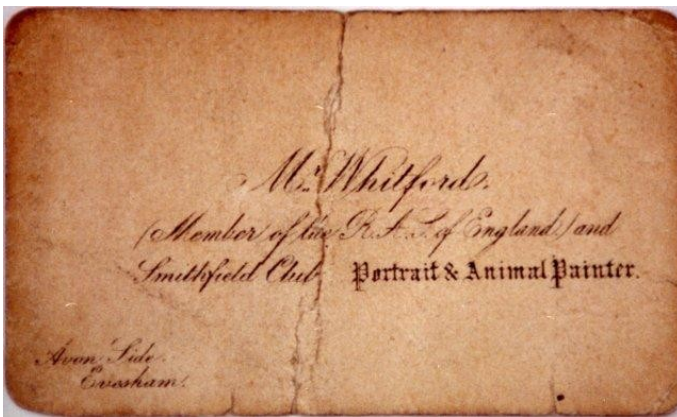 Mr. Whitford.
(Member of the R.A.S. of England) and
Smithfield Club Portrait & Animal Painter.
Avon Side.
Evesham.